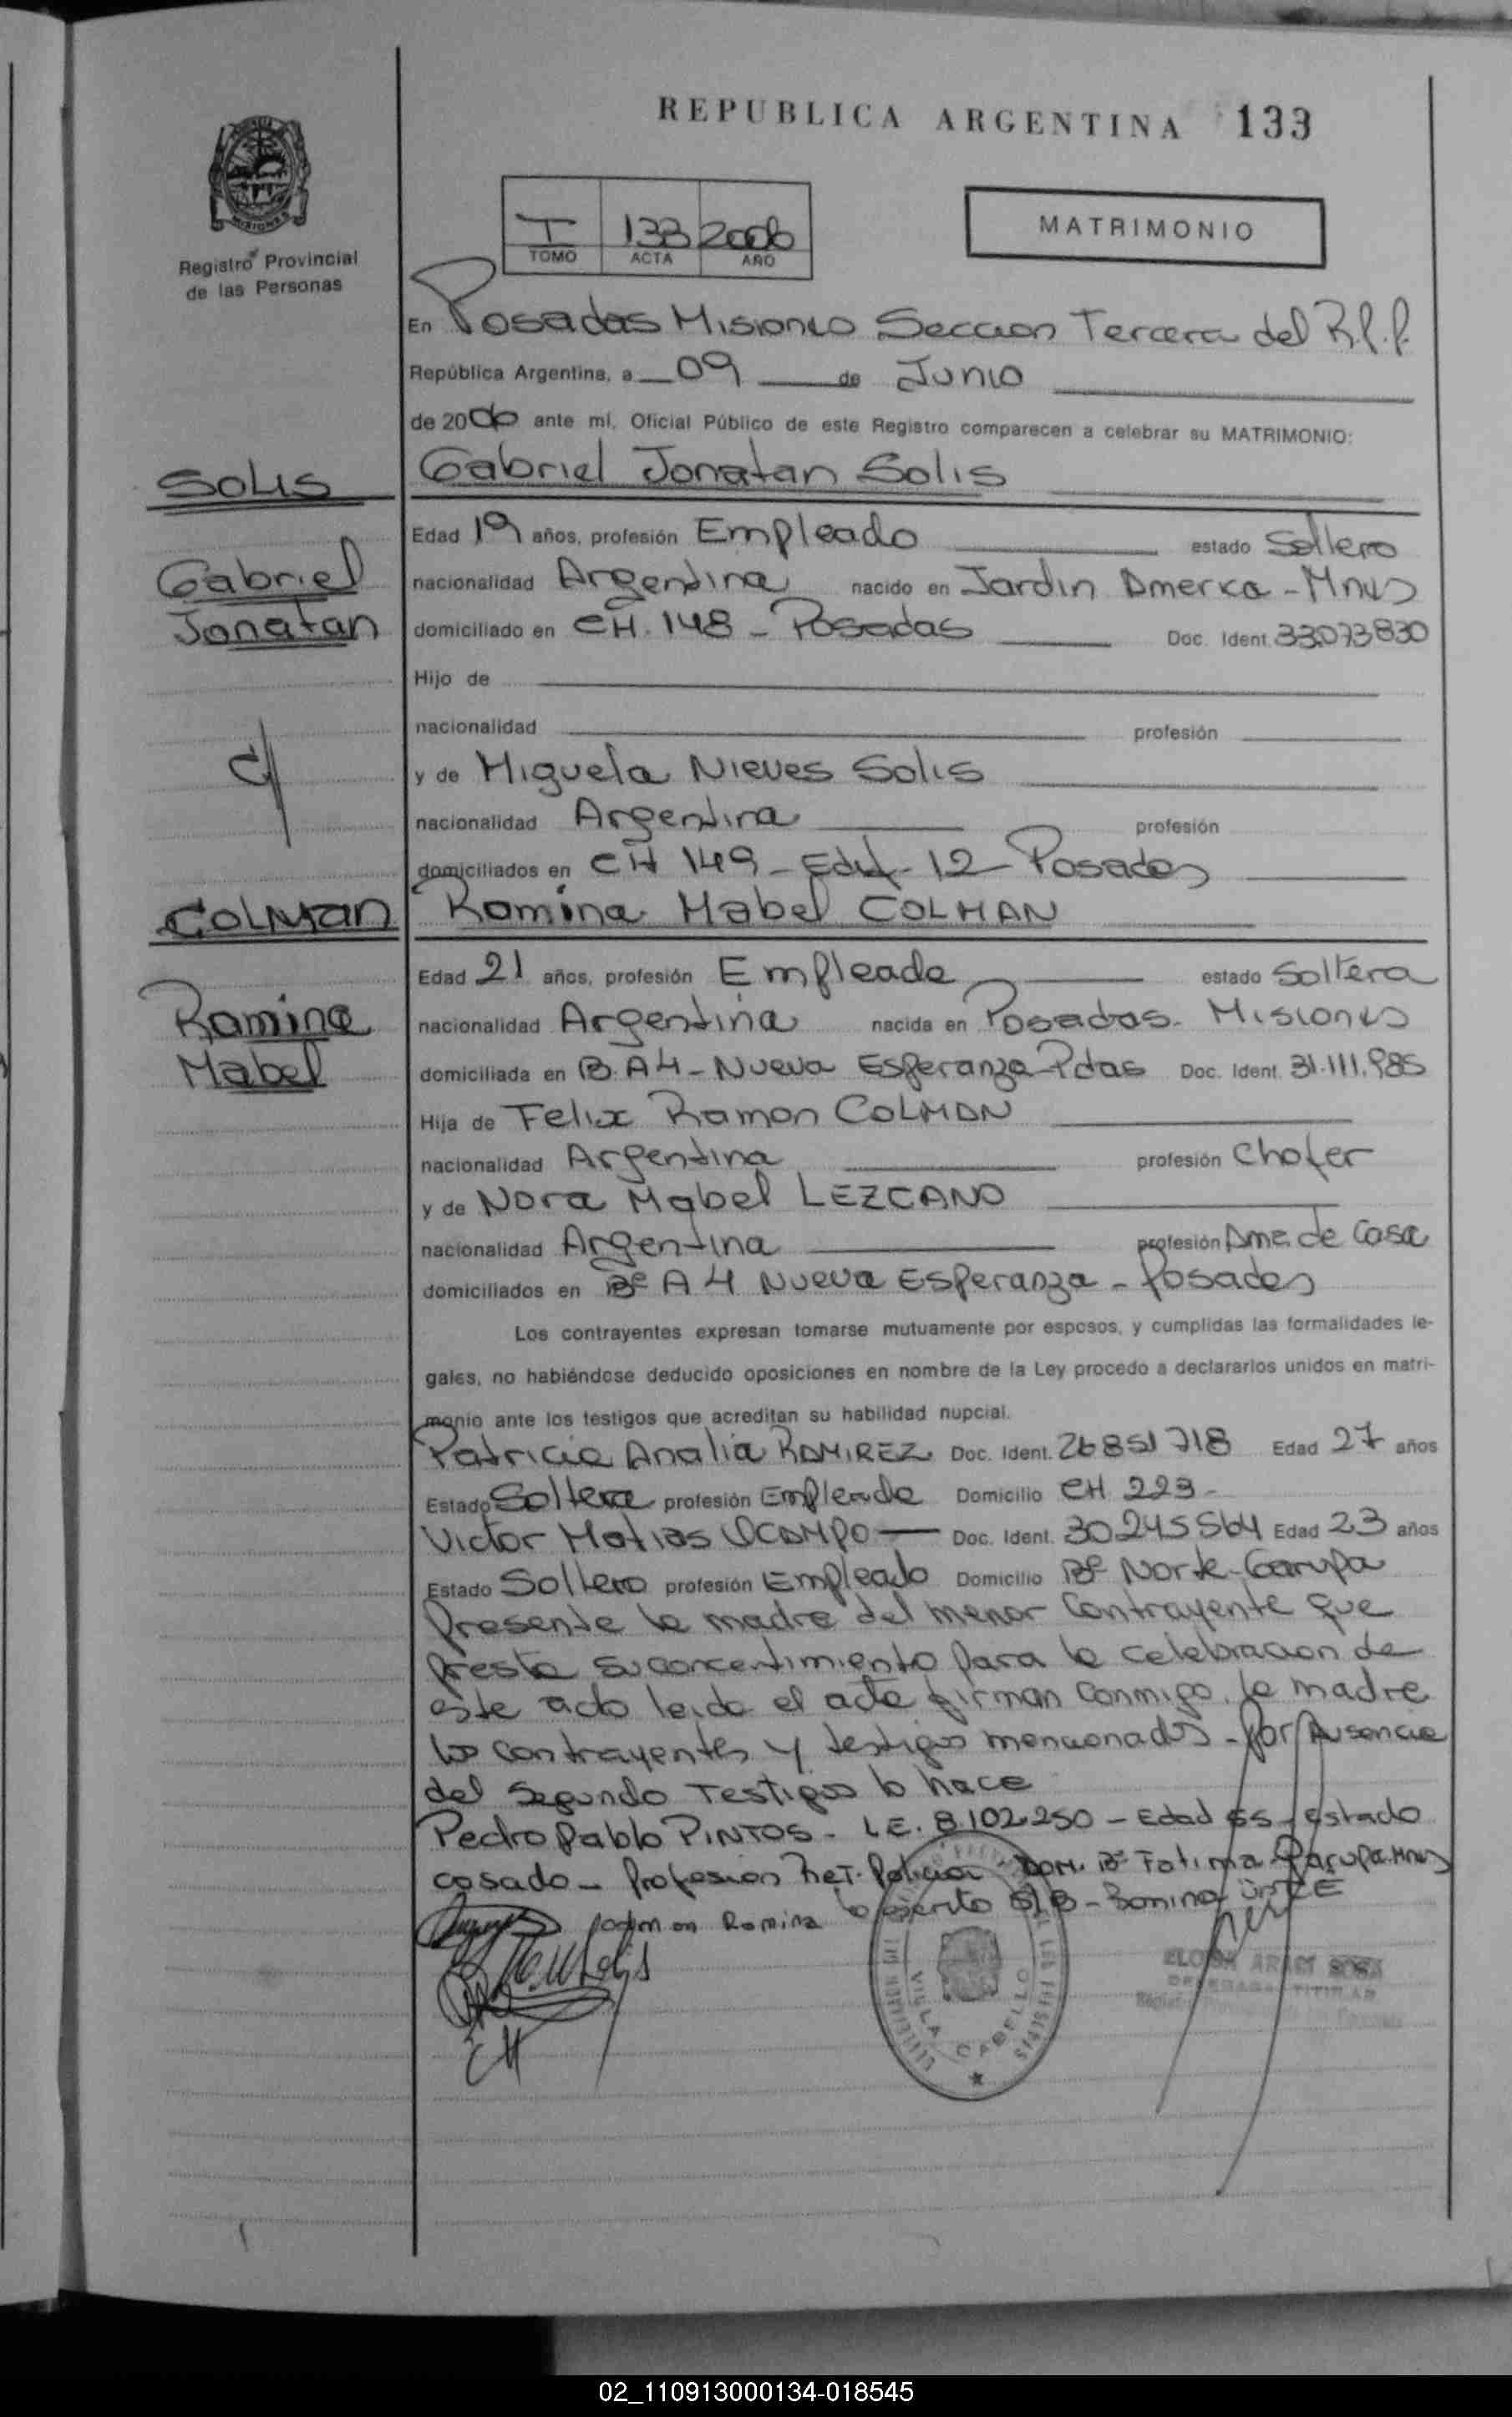 REPUBLICA ARGENTINA 133
MISIONES
Registro Provincial
de las Personas
I 133 2006
TOMO ACTA AÑO
MATRIMONIO
En Posadas Misiones Seccion Tercera del R.P.P.
República Argentina, a 09 de Junio
de 2006 ante mí, Oficial Público de este Registro comparecen a celebrar su MATRIMONIO:
SOLIS
Gabriel Jonatan Solis
Edad 19 años, profesión Empleado estado Soltero
Gabriel
nacionalidad Argentina nacido en Jardin America - Mnes
Jonatan
domiciliado en CH. 148 - Posadas Doc. Ident. 33.073.830
Hijo de
nacionalidad profesión
c/
y de Miguela Nieves Solis
nacionalidad Argentina profesión
domiciliados en CH 149 - Edif - 12 - Posadas
COLMAN
Romina Mabel COLMAN
Edad 21 años, profesión Empleada estado Soltera
Romina
nacionalidad Argentina nacida en Posadas - Misiones
Mabel
domiciliada en B. A4 - Nueva Esperanza - Pdas Doc. Ident. 31.111.985
Hija de Felix Ramon COLMAN
nacionalidad Argentina profesión Chofer
y de Nora Mabel LEZCANO
nacionalidad Argentina profesión Ama de Casa
domiciliados en Bº A 4 Nueva Esperanza - Posadas
Los contrayentes expresan tomarse mutuamente por esposos, y cumplidas las formalidades le-
gales, no habiéndose deducido oposiciones en nombre de la Ley procedo a declararlos unidos en matri-
monio ante los testigos que acreditan su habilidad nupcial.
Patricia Analia RAMIREZ Doc. Ident. 26851718 Edad 27 años
Estado Soltera profesión Empleada Domicilio CH 223 -
Victor Matias OCAMPO - Doc. Ident. 30245564 Edad 23 años
Estado Soltero profesión Empleado Domicilio Bº Norte - Garupa
Presente la madre del menor contrayente que
presta su concentimiento para la celebracion de
este acto leida el acta firman conmigo, la madre
los contrayentes y testigos mencionados - Por Ausencia
del Segundo Testigo lo hace
Pedro Pablo PINTOS - L.E. 8.102.250 - Edad 55 - estado
casado - Profesion Ret. Policia - DOM. Bº Fatima - Garupa - Mnes
lo escrito S/B - Romina
VILLA CABELLO
DELEGADA TITULAR
02_110913000134-018545